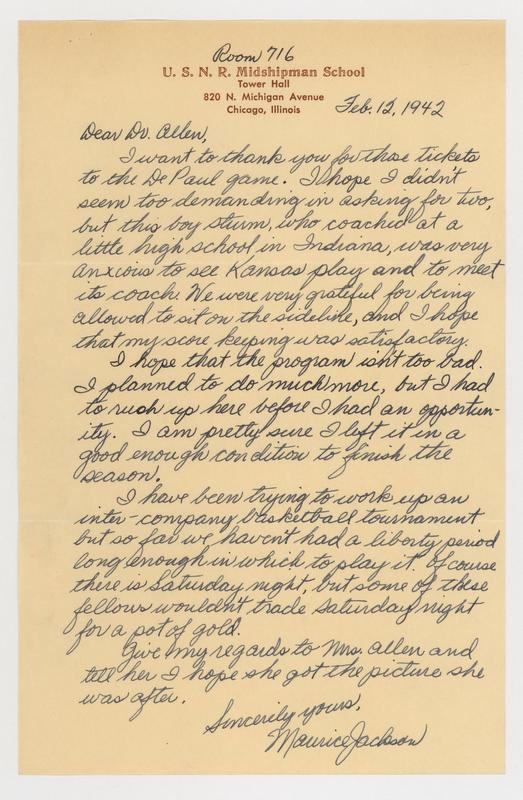 Room 716
U. S. N. R. Midshipman School
Tower Hall
820 N. Michigan Avenue
Chicago, Illinois
Feb. 12, 1942
Dear Dr. Allen,
I want to thank you for those tickets
to the De Paul game. I hope I didn't
seem too demanding in asking for two,
but this boy Sturm, who coached at a
little high school in Indiana, was very
anxious to see Kansas play and to meet
its coach. We were very grateful for being
allowed to sit on the sideline, and I hope
that my score keeping was satisfactory.
I hope that the program isn't too bad.
I planned to do much more, but I had
to rush up here before I had an opportun-
ity. I am pretty sure I left it in a
good enough condition to finish the
season.
I have been trying to work up an
inter-company basketball tournament
but so far we haven't had a liberty period
long enough in which to play it. Of course
there is Saturday night, but some of these
fellows wouldn't trade Saturday night
for a pot of gold.
Give my regards to Mrs. Allen and
tell her I hope she got the picture she
was after.
Sincerely yours,
Maurice Jackson